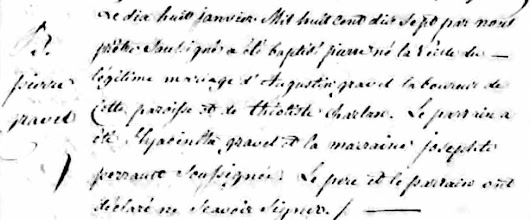 Le dix huit janvier Mil huit cent dix Sept par nous
B. prêtre Soussigné a été baptisé pierre né la Veille du
pierre légitime mariage d'Augustin gravel laboureur de
gravel cette paroisse et de théotiste charlan. Le parrain a
été Hyacinthe gravel et la marraine josephte
perrault Soussignée. Le pere et le parrain ont
déclaré ne Scavoir Signer./